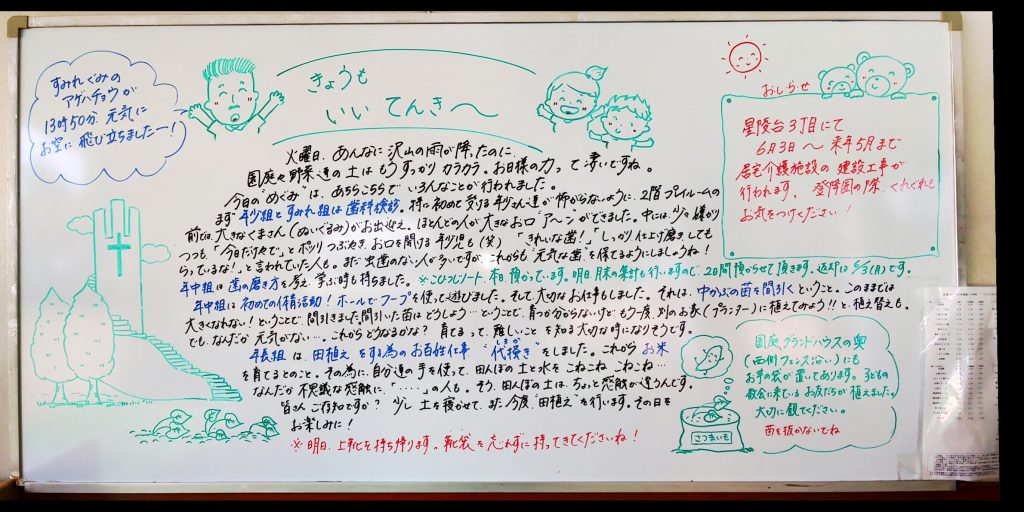 すみれぐみの
アゲハチョウが
13時50分 元気に
お空に飛び立ちましたー!
きょうも
いい てんき〜
おしらせ
星陵台3丁目にて
6月3日〜来年5月まで
居宅介護施設の建設工事が
行われます。登降園の際、くれぐれも
お気をつけください!
火曜日、あんなに沢山の雨が降ったのに
園庭や野菜達の土はもうすっかりカラカラ。お日様の力って凄いですね。
今日の"めぐみ"は、あちらこちらでいろんなことが行われました。
まず年少組とすみれ組は歯科検診。特に初めて受ける年少さん達が怖がらないように、2階プレイルームの
前では大きなくまさん(ぬいぐるみ)がお出迎え。ほとんどの人が大きなお口"アーン"ができました。中には少々嫌がり
つつも「今日だけやで」とボソリつぶやき、お口を開ける年少児も(笑) 「きれいな歯!」「しっかり仕上げ磨きしても
らっているな!」と言われていた人も。まだ虫歯のない人が多いですが、これからも"元気な歯"を保てるようにしましょうね!
年中組は歯の磨き方を 学ぶ時も持ちました。※こひつじノート、本日預かっています。明日、月末の集計も行いますので、2日間預からせて頂きます。返却は6/3(月)です。
年中組は初めての体育活動!ホールでフープを使って遊びました。そして大切なお仕事もしました。それは、中かぶの苗を間引くということ。このままでは
大きくなれない!ということで、間引きました。間引いた苗はどうしよう…ということで、育つか分からないけど、もう一度、別のお家(プランター)に植えてみよう!!と、植え替えも。
でも、なんだか元気がない…。これからどうなるかな? 育てるって、難しいことを知る大切な時になりそうです。
年長組は、田植えをする為のお百姓仕事"代掻き"をしました。これからお米
しろか
を育てるとのこと。その為に、自分達の手を使って、田んぼの土と水をこねこね こねこね…
なんだか不思議な感触に「・・・・・」の人も。そう、田んぼの土は、ちょっと感触が違うんです。
皆さんご存知ですか? 少し土を寝かせて、また今度、"田植え"を行います。その日を
お楽しみに!
※明日、上靴を持ち帰ります。靴袋を忘れずに持ってきてくださいね!
園庭、グランドハウスの奥
(西側フェンス沿い)にも
お芋の袋が置いてあります。子どもの
教会に来ているお友だちが植えました。
大切に観てください。
苗を抜かないでね
さつまいも